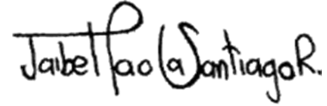 Jaibel Paola Santiago R.